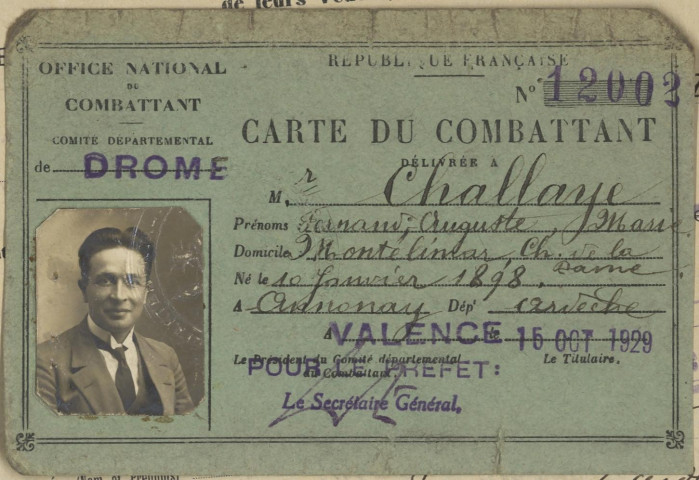 de leurs
OFFICE NATIONAL
DU
COMBATTANT
COMITÉ DÉPARTEMENTAL
de DROME
RÉPUBLIQUE FRANÇAISE
N° 12002
CARTE DU COMBATTANT
DÉLIVRÉE A
M.r Challaye
Prénoms Fernand, Auguste, Marie
Domicile Montélimar, Ch. de la
Dame
Né le 10 Janvier 1898
A Annonay Dépt ardèche
A VALENCE le 15 OCT 1929
Le Président du Comité départemental
du Combattant,
Le Titulaire.
POUR LE PREFET:
Le Secrétaire Général,